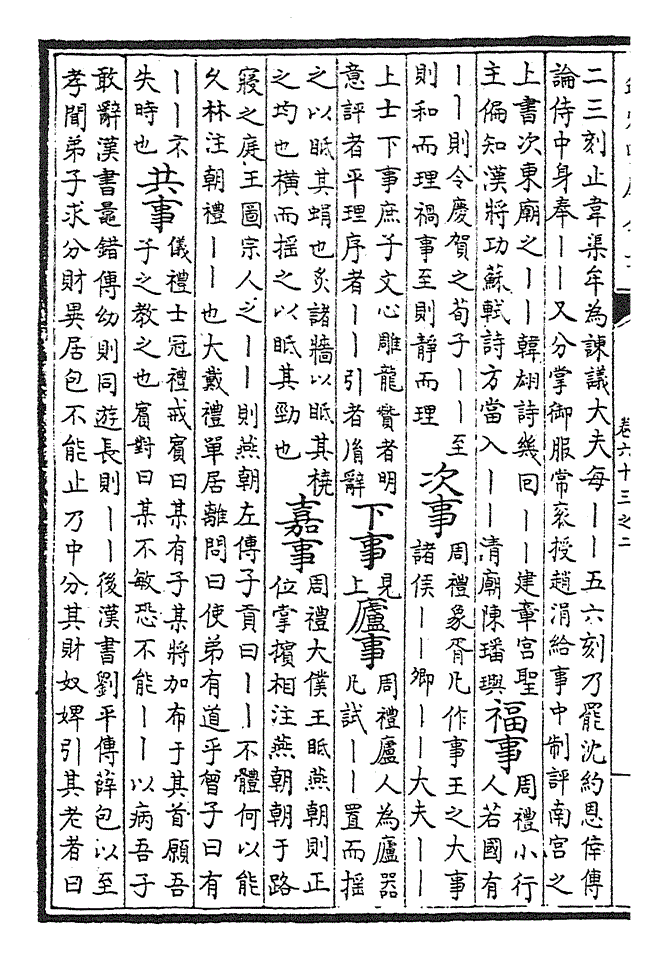 卷六十三之二
二三刻止韋渠牟為諫議大夫每丨丨五六刻乃罷沈約恩倖傳
論侍中身奉丨丨又分掌御服常衮授趙涓給事中制評南宫之
上書次東廟之丨丨韓翃詩幾回丨丨建章宫聖
主偏知漢將功蘇軾詩方當入丨丨清廟陳璠璵
福事
周禮小行
人若國有
丨丨則令慶賀之荀子丨丨至
則和而理禍事至則靜而理
次事
周禮象胥凡作事王之大事
諸侯丨丨卿丨丨大夫丨丨
上士下事庶子文心雕龍贊者明
意評者平理序者丨丨引者胤辭
下事
見
上
廬事
周禮廬人為廬器
凡試丨丨置而摇
之以眂其蜎也炙諸牆以眂其橈
之均也橫而摇之以眂其勁也
嘉事
周禮大僕王眂燕朝則正
位掌擯相注燕朝朝于路
寢之庭王圖宗人之丨丨則燕朝左傳子貢曰丨丨不體何以能
久林注朝禮丨丨也大戴禮單居離問曰使弟有道乎曾子曰有
丨丨不
失時也
共事
儀禮士冠禮戒賓曰某有子某將加布于其首願吾
子之教之也賓對曰某不敏恐不能丨丨以病吾子
敢辭漢書鼂錯傳幼則同遊長則丨丨後漢書劉平傳薛包以至
孝聞弟子求分財異居包不能止乃中分其財奴婢引其老者曰